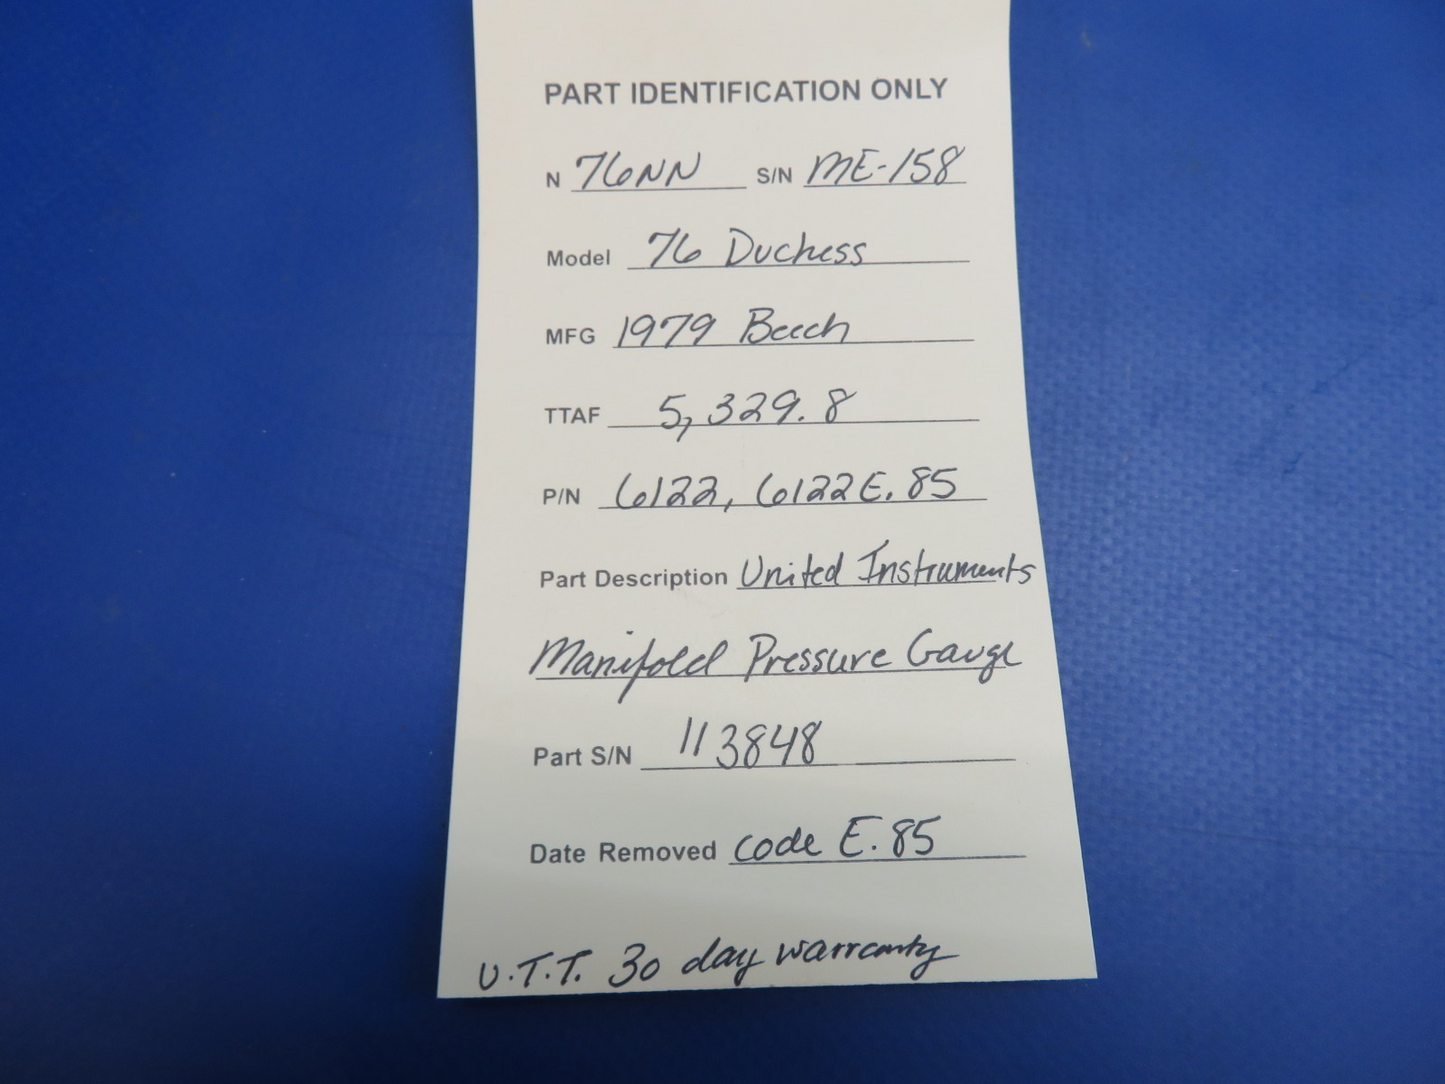 PART IDENTIFICATION ONLY
N 76NN S/N ME-158
Model 76 Duchess
MFG 1979 Beech
TTAF 5,329.8
P/N 6122, 6122E.85
Part Description United Instruments
Manifold Pressure Gauge
Part S/N 113848
Date Removed code E.85
U.T.T. 30 day warranty